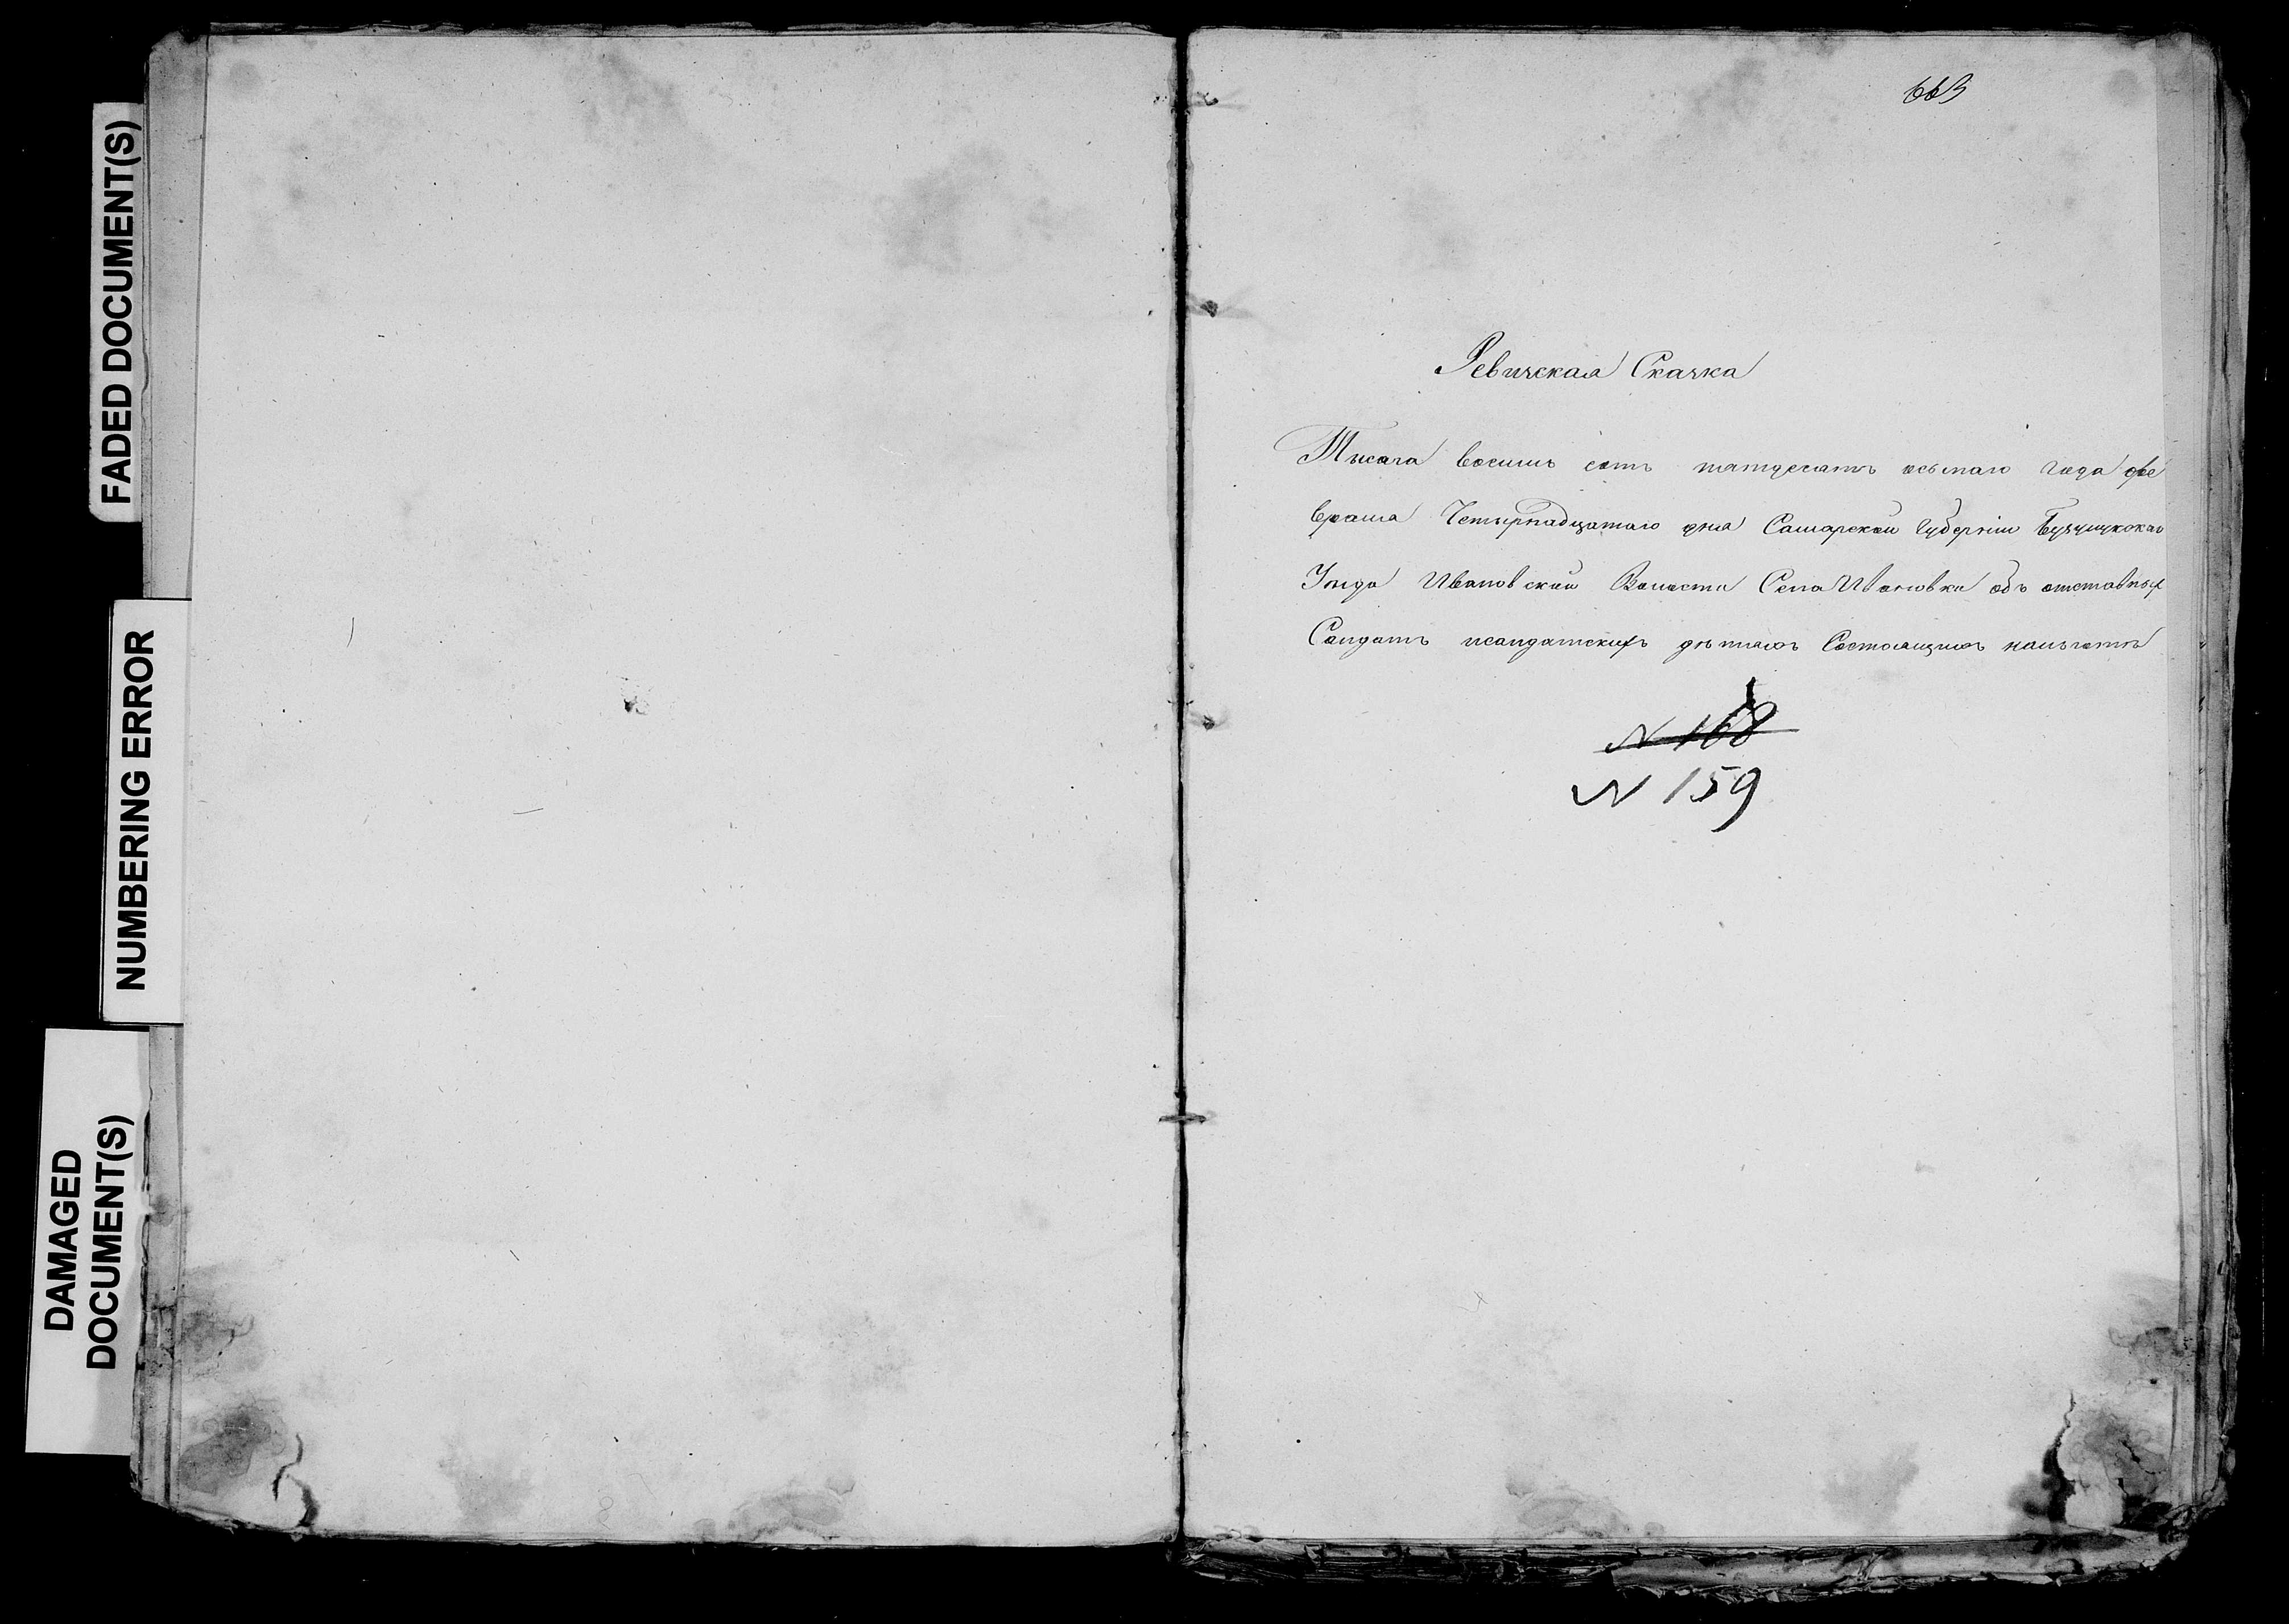 FADED DOCUMENT(S)
NUMBERING ERROR
DAMAGED
DOCUMENT(S)
663
Ревижская Скаска
Тысяча восимь сотъ пятдесятъ осьмаго года фе
враля Четырнадцатаго дня Самарской Губерніи Бузулукскаго
Уѣзда Ивановской Волости Села Ивановки объ отставных
Солдатъ исолдатскихъ дѣтяхъ Состоящихъ налъготѣ
N 168
N 159